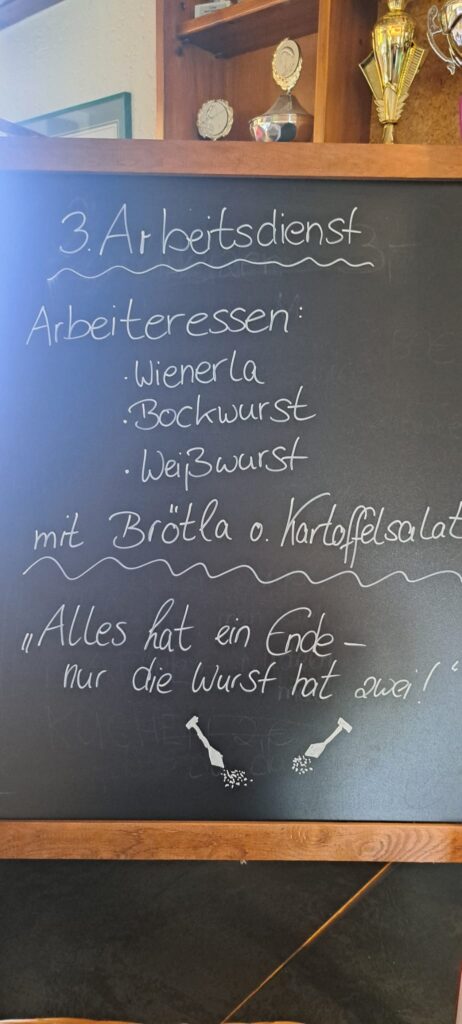 3. Arbeitsdienst
Arbeiteressen:
· Wienerla
· Bockwurst
· Weißwurst
mit Brötla o. Kartoffelsalat
„Alles hat ein Ende –
nur die Wurst hat zwei!“